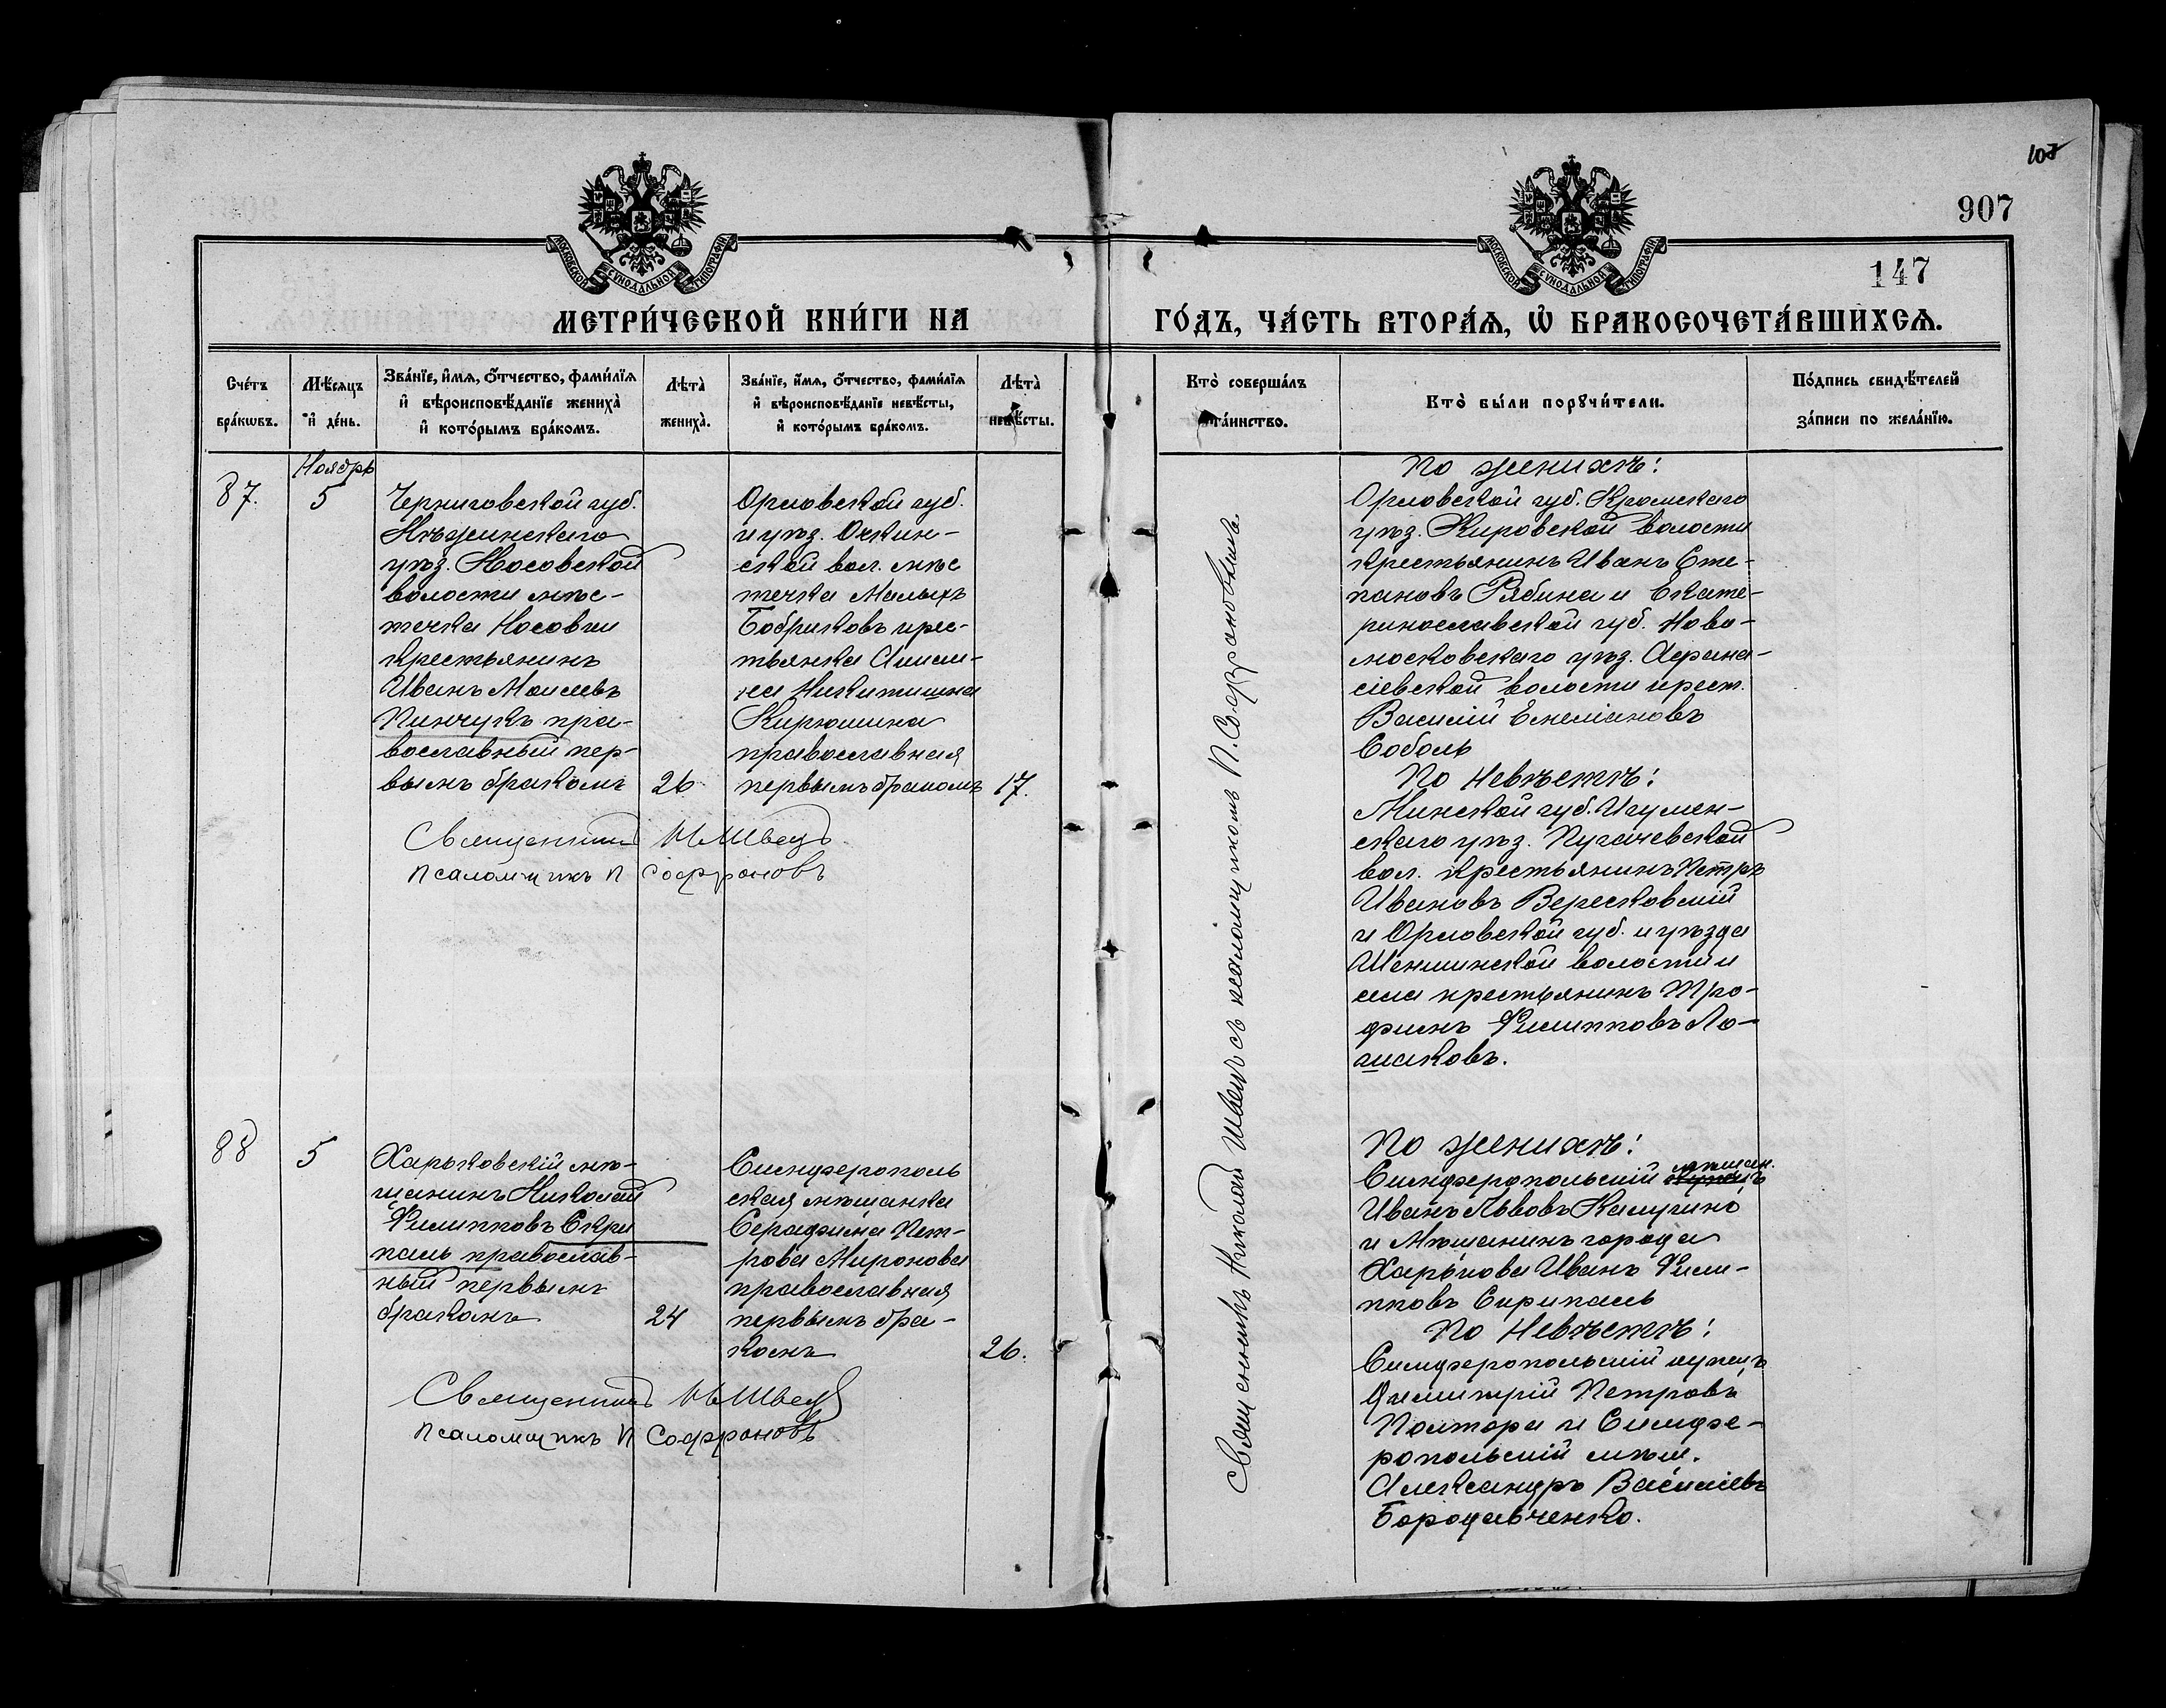 107
907
147
МОСКОВСКОЙ СУНОДАЛЬНОЙ ТИПОГРАФІИ
МОСКОВСКОЙ СУНОДАЛЬНОЙ ТИПОГРАФІИ
МЕТРИ́ЧЕСКОЙ КНИ́ГИ НА
ГО́ДЪ, ЧА́СТЬ ВТОРА́Я, Ѡ БРАКОСОЧЕТА́ВШИХСЯ.
Сче́тъ бра́кѡвъ.
Мѣ́сяцъ и де́нь.
Зва́нїе, и́мя, ѻ́тчество, фами́лїя и вѣроисповѣ́данїе жениха̀ и кото́рымъ бра́комъ.
Лѣта̀ жениха̀.
Зва́нїе, и́мя, ѻ́тчество, фами́лїя и вѣроисповѣ́данїе невѣ́сты, и кото́рымъ бра́комъ.
Лѣта̀ невѣ́сты.
Кто̀ соверша́лъ та́инство.
Кто̀ бы́ли порꙋчи́тели.
По́дпись свидѣ́телей за́писи по жела́нїю.
87.
Ноябрь
5
Черниговской губ.
Нѣжинскаго
уѣз. Носовской
волости мѣс-
течка Носовки
крестьянинъ
Иванъ Моисеевъ
Пинчукъ пра-
вославный пер-
вымъ бракомъ
26
Орловской губ.
и уѣз.
ской вол. мѣс
течка Малыхъ
Бобриковъ крес-
тьянка
на Никитишна
Кирюшина
православная
первымъ бракомъ
17.
Священникъ Н Швецъ
псаломщикъ П Софроновъ
Священникъ Николай Швецъ съ псаломщикомъ П. Софроновымъ.
По женихѣ:
Орловской губ. Кромскаго
уѣз. Кировской волости
крестьянинъ Иванъ Сте-
пановъ Рябина и Екате-
ринославской губ. Ново-
московскаго уѣз. Афана-
сіевской волости крест.
Василій Емеліановъ
Соболь
По Невѣстѣ:
Минской губ. Игумен-
скаго уѣз. Пугачевской
вол. крестьянинъ Петръ
Ивановъ Вересковскій
и Орловской губ. и уѣзда
Шеншинской волости и
села крестьянинъ Тро-
фимъ Филипповъ Ло-
шаковъ.
88
5
Харьковскій мѣ-
щанинъ Николай
Филипповъ Скри
паль православ-
ный первымъ
бракомъ
24
Симферополь
ская мѣщанка
Серафима Пет-
рова Миронова
православная
первымъ бра-
комъ
26.
Священникъ Н Швецъ
псаломщикъ П Софроновъ
По женихѣ:
Симферопольскій мѣщан.
Иванъ Львовъ Калугинъ
и Мѣщанинъ города
Харькова Иванъ Фили-
пповъ Скрипаль
По Невѣстѣ:
Симферопольскій купецъ
Димитрій Петровъ
Полтора и Симфе-
ропольскій мѣщ.
Александръ Василіевъ
Бородавченко.